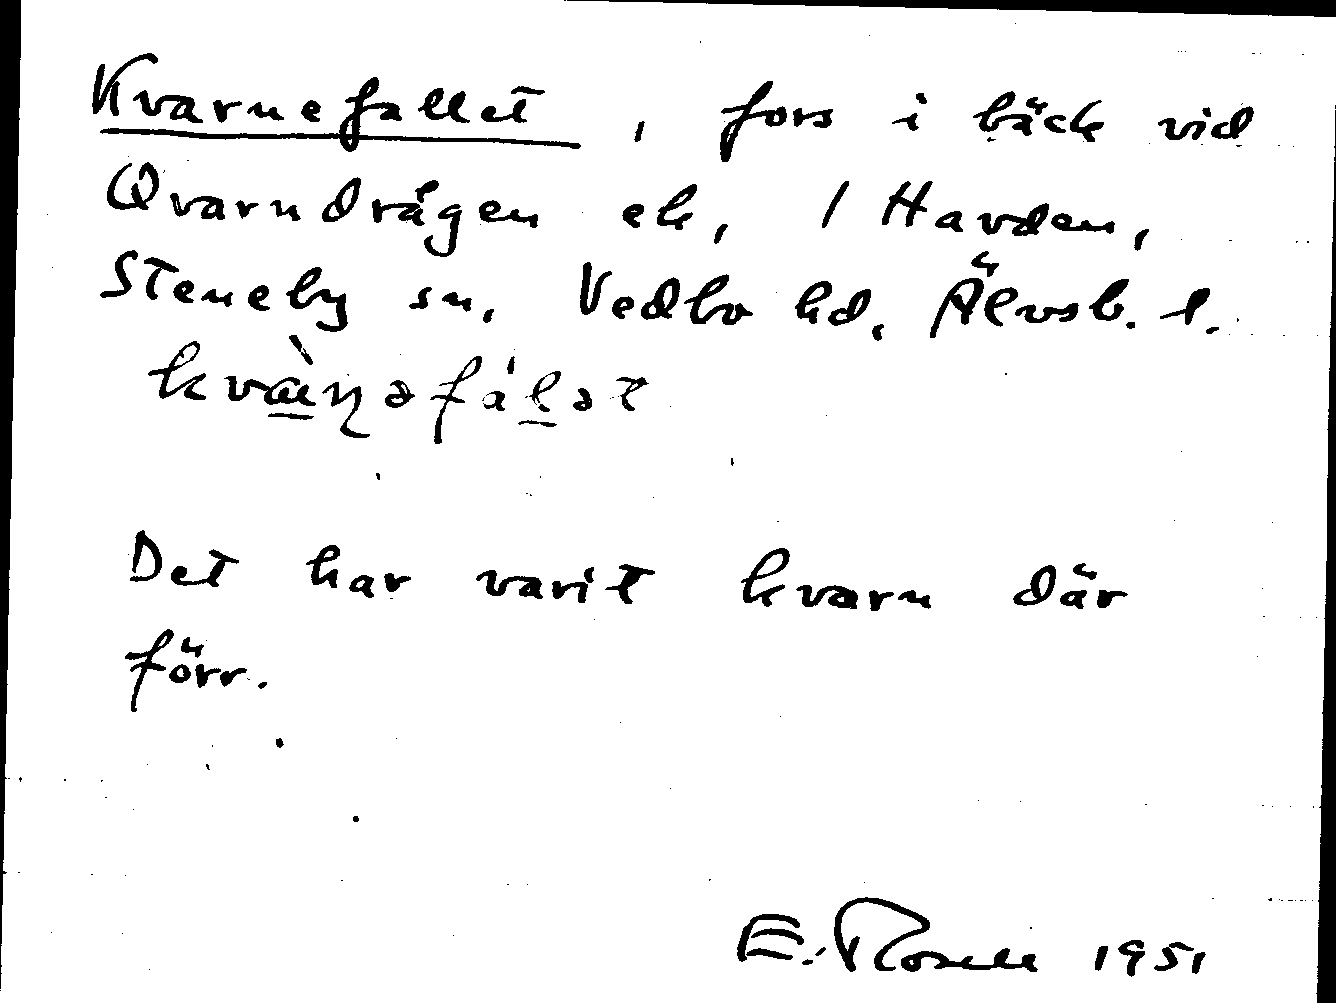 Kvarnefallet, fors i bäck vid
Qvarndrågen ek, 1 Havden,
Steneby sn, Vedbo hd, Älvsb. l.
kvæ̀ɳəfálət
Det har varit kvarn där
förr.
E. Rosell 1951